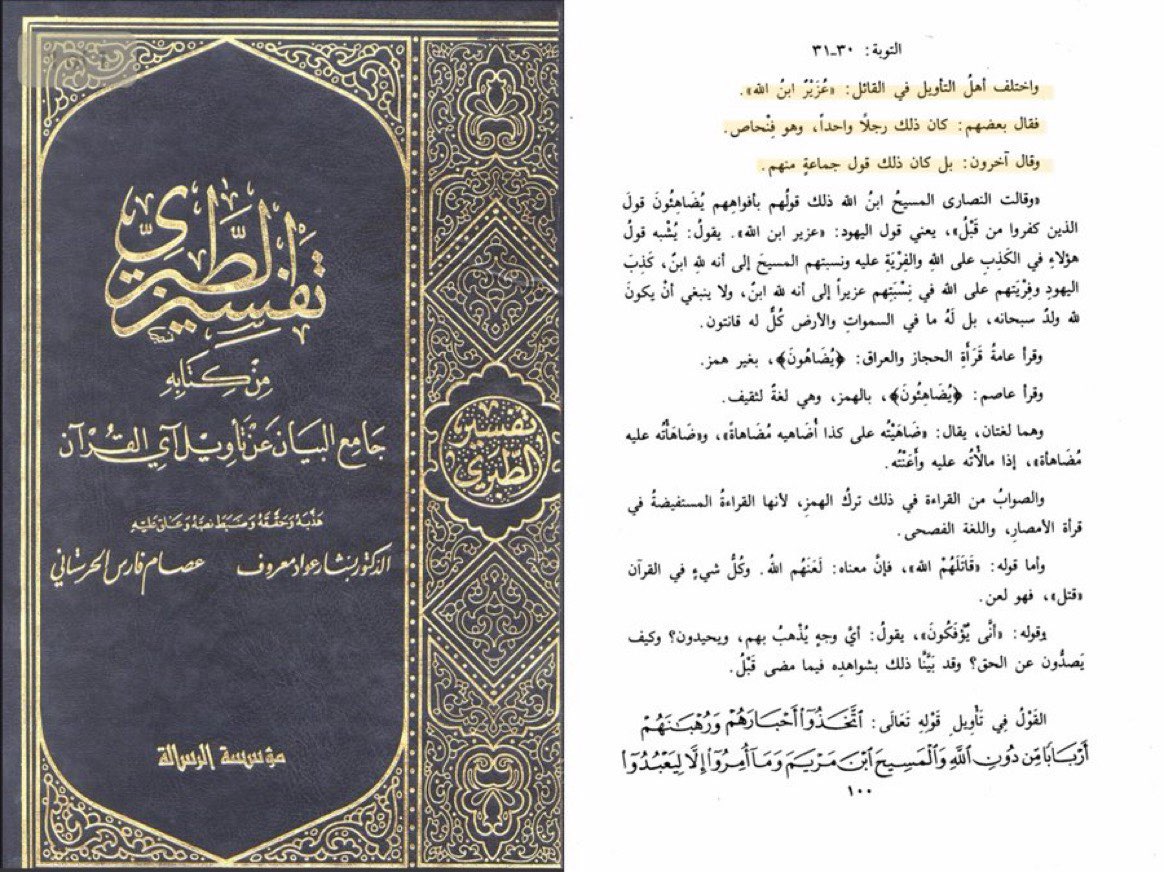 تفسير الطبري
من كتابه
جامع البيان عن تأويل آي القرآن
هذبه وحققه وضبط نصه وعلق عليه
الدكتور بشار عواد معروف عصام فارس الحرستاني
مؤسسة الرسالة
تفسير
الطبري
التوبة: ٣٠-٣١
واختلف أهلُ التأويل في القائل: «عُزَيْرٌ ابنُ الله».
فقال بعضهم: كان ذلك رجلًا واحداً، وهو فِنْحاص.
وقال آخرون: بل كان ذلك قول جماعةٍ منهم.
«وقالت النصارى المسيحُ ابنُ الله ذلك قولُهم بأفواهِهم يُضَاهِئُونَ قولَ
الذين كفروا من قَبْلُ»، يعني قول اليهود: «عزير ابن الله». يقولُ: يُشْبه قولُ
هؤلاءِ في الكَذِبِ على اللهِ والفِرْيَةِ عليه ونسبتهم المسيحَ إلى أنه للهِ ابنُ، كَذِبَ
اليهودِ وفِرْيَتهم على الله في نِسْبَتِهم عزيراً إلى أنه لله ابنُ، ولا ينبغي أنْ يكونَ
لله ولدٌ سبحانه، بل لَهُ ما في السمواتِ والأرض كُلٌّ له قانتون.
وقرأ عامةُ قَرَأَةِ الحجاز والعراق: ﴿يُضَاهُونَ﴾، بغير همز.
وقرأ عاصم: ﴿يُضَاهِئُونَ﴾، بالهمز، وهي لغةٌ لثقيف.
وهما لغتان، يقال: «ضَاهَيْتُه على كذا أُضَاهيه مُضَاهاةً»، و«ضَاهَأْتُه عليه
مُضَاهأة»، إذا مالأْتُه عليه وأَعَنْتُه.
والصوابُ من القراءة في ذلك تركُ الهمزِ، لأنها القراءةُ المستفيضةُ في
قرأة الأمصارِ، واللغة الفصحى.
وأما قوله: «قَاتَلَهُمْ الله»، فإنَّ معناه: لَعَنَهُم اللهُ. وكلُّ شيءٍ في القرآن
«قتل»، فهو لعن.
وقوله: «أنَّى يُؤْفَكُونَ»، يقولُ: أيَّ وجهٍ يُذْهبُ بهم، ويحيدون؟ وكيف
يَصدُّون عن الحق؟ وقد بَيَّنَّا ذلك بشواهدِه فيما مضى قَبْلُ.
القَوْلُ فِي تَأْوِيلِ قَوْلِهِ تَعَالَى: ٱتَّخَذُوٓاْ أَحْبَارَهُمْ وَرُهْبَٰنَهُمْ
أَرْبَابًا مِّن دُونِ ٱللَّهِ وَٱلْمَسِيحَ ٱبْنَ مَرْيَمَ وَمَآ أُمِرُوٓاْ إِلَّا لِيَعْبُدُوٓاْ
١٠٠